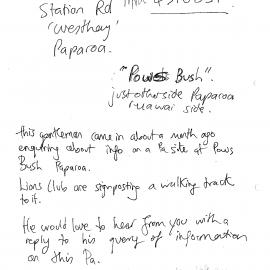 Station Rd
'Westhay'
Paparoa.
"Pows Bush".
just otherside Paparoa
ruawai side.
this gentleman came in about a month ago
enquiring about info on a Pa site at Pows
Bush Paparoa.
Lions Club are signposting a walking track
to it.
He would love to hear from you with a
reply to his query of information
on this Pa.